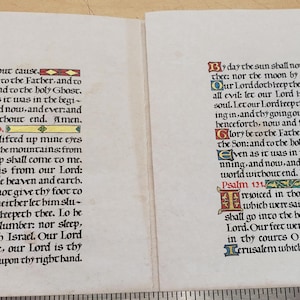 out cause.
to the Father, and to
nd to the holy Ghost.
s it was in the begi-
d now, and ever: and
ithout end. Amen.
lifted up mine eyes
he mountains: from
p shall come to me.
is from our Lord:
e heaven and earth.
not give thy foot to
either let him slu-
keepeth thee. Lo he
lumber: nor sleep,
h Israel. Our Lord
e, our Lord is thy
upon thy right hand.
By day the sun shall no
thee: nor the moon by
Our Lord doth keep the
all evil: let our Lord
soul. Let our Lord keep
ing in, and thy going ou
henceforth, now and
Glory be to the Father
the Son: and to the hol
Even as it was in th
nning, and now, and
world without end.
Psalm 121.
I rejoiced in tha
which were sa
shall go into the h
Lord. Our feet wer
in thy courts O
Jerusalem which